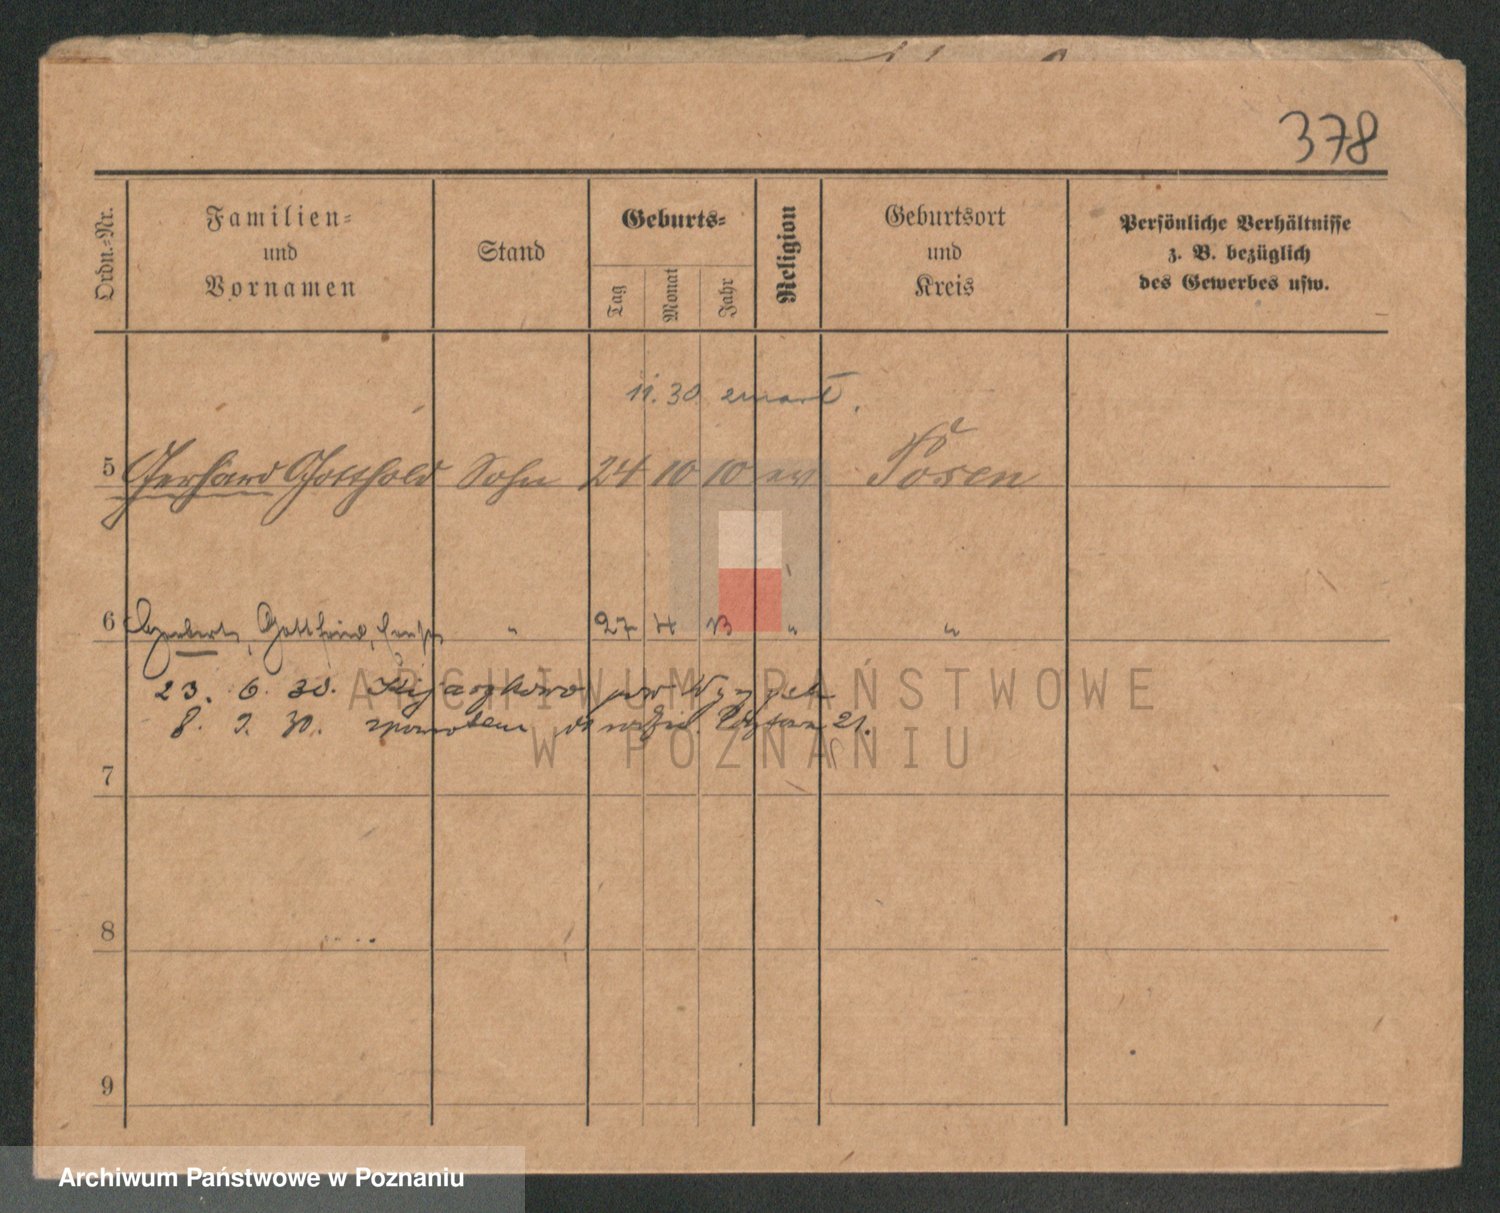 378
Ordn.=Nr.
Familien=
und
Vornamen
Stand
Geburts=
Tag
Monat
Jahr
Religion
Geburtsort
und
Kreis
Persönliche Verhältnisse
z. B. bezüglich
des Gewerbes usw.
11. 30. emart.
5 Gerhard Gotthold Sohn 24 10 10 ev Posen
6 Gottfried, " 27 4 13 " "
23. 6. 30. pow
8. 30. 21.
ARCHIWUM PAŃSTWOWE
W POZNANIU
7
8
9
Archiwum Państwowe w Poznaniu